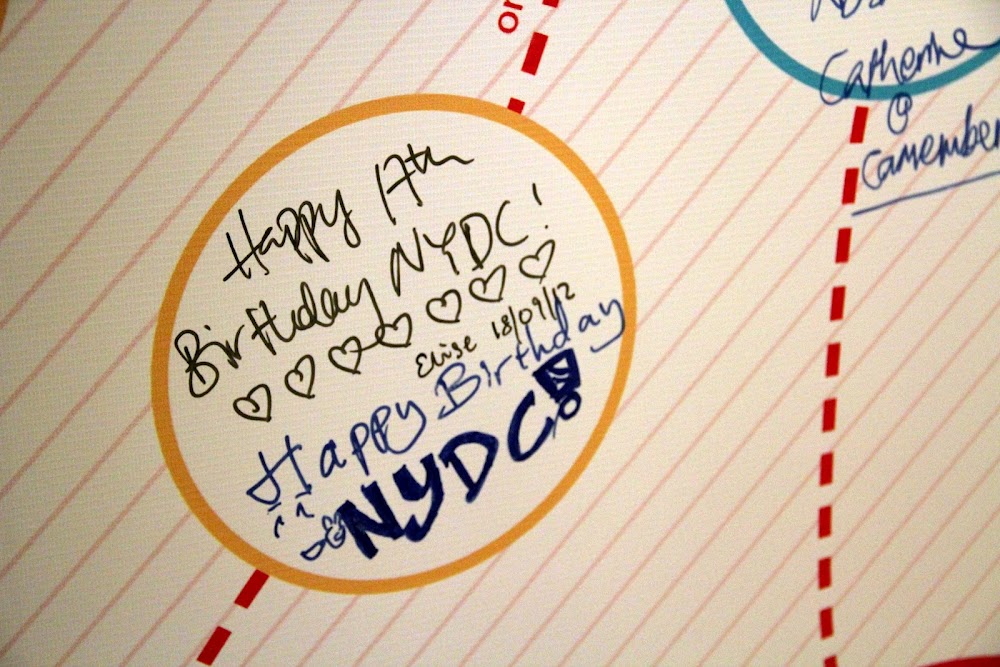 or
Happy 17th
Birthday NYDC!
Elise 18/09/12
Happy Birthday
NYDC!
Catherine
@
Camember